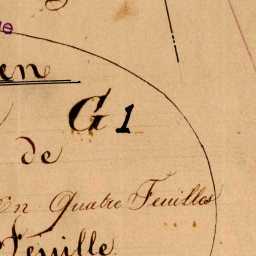 en
G 1
de
En Quatre Feuilles
Feuille